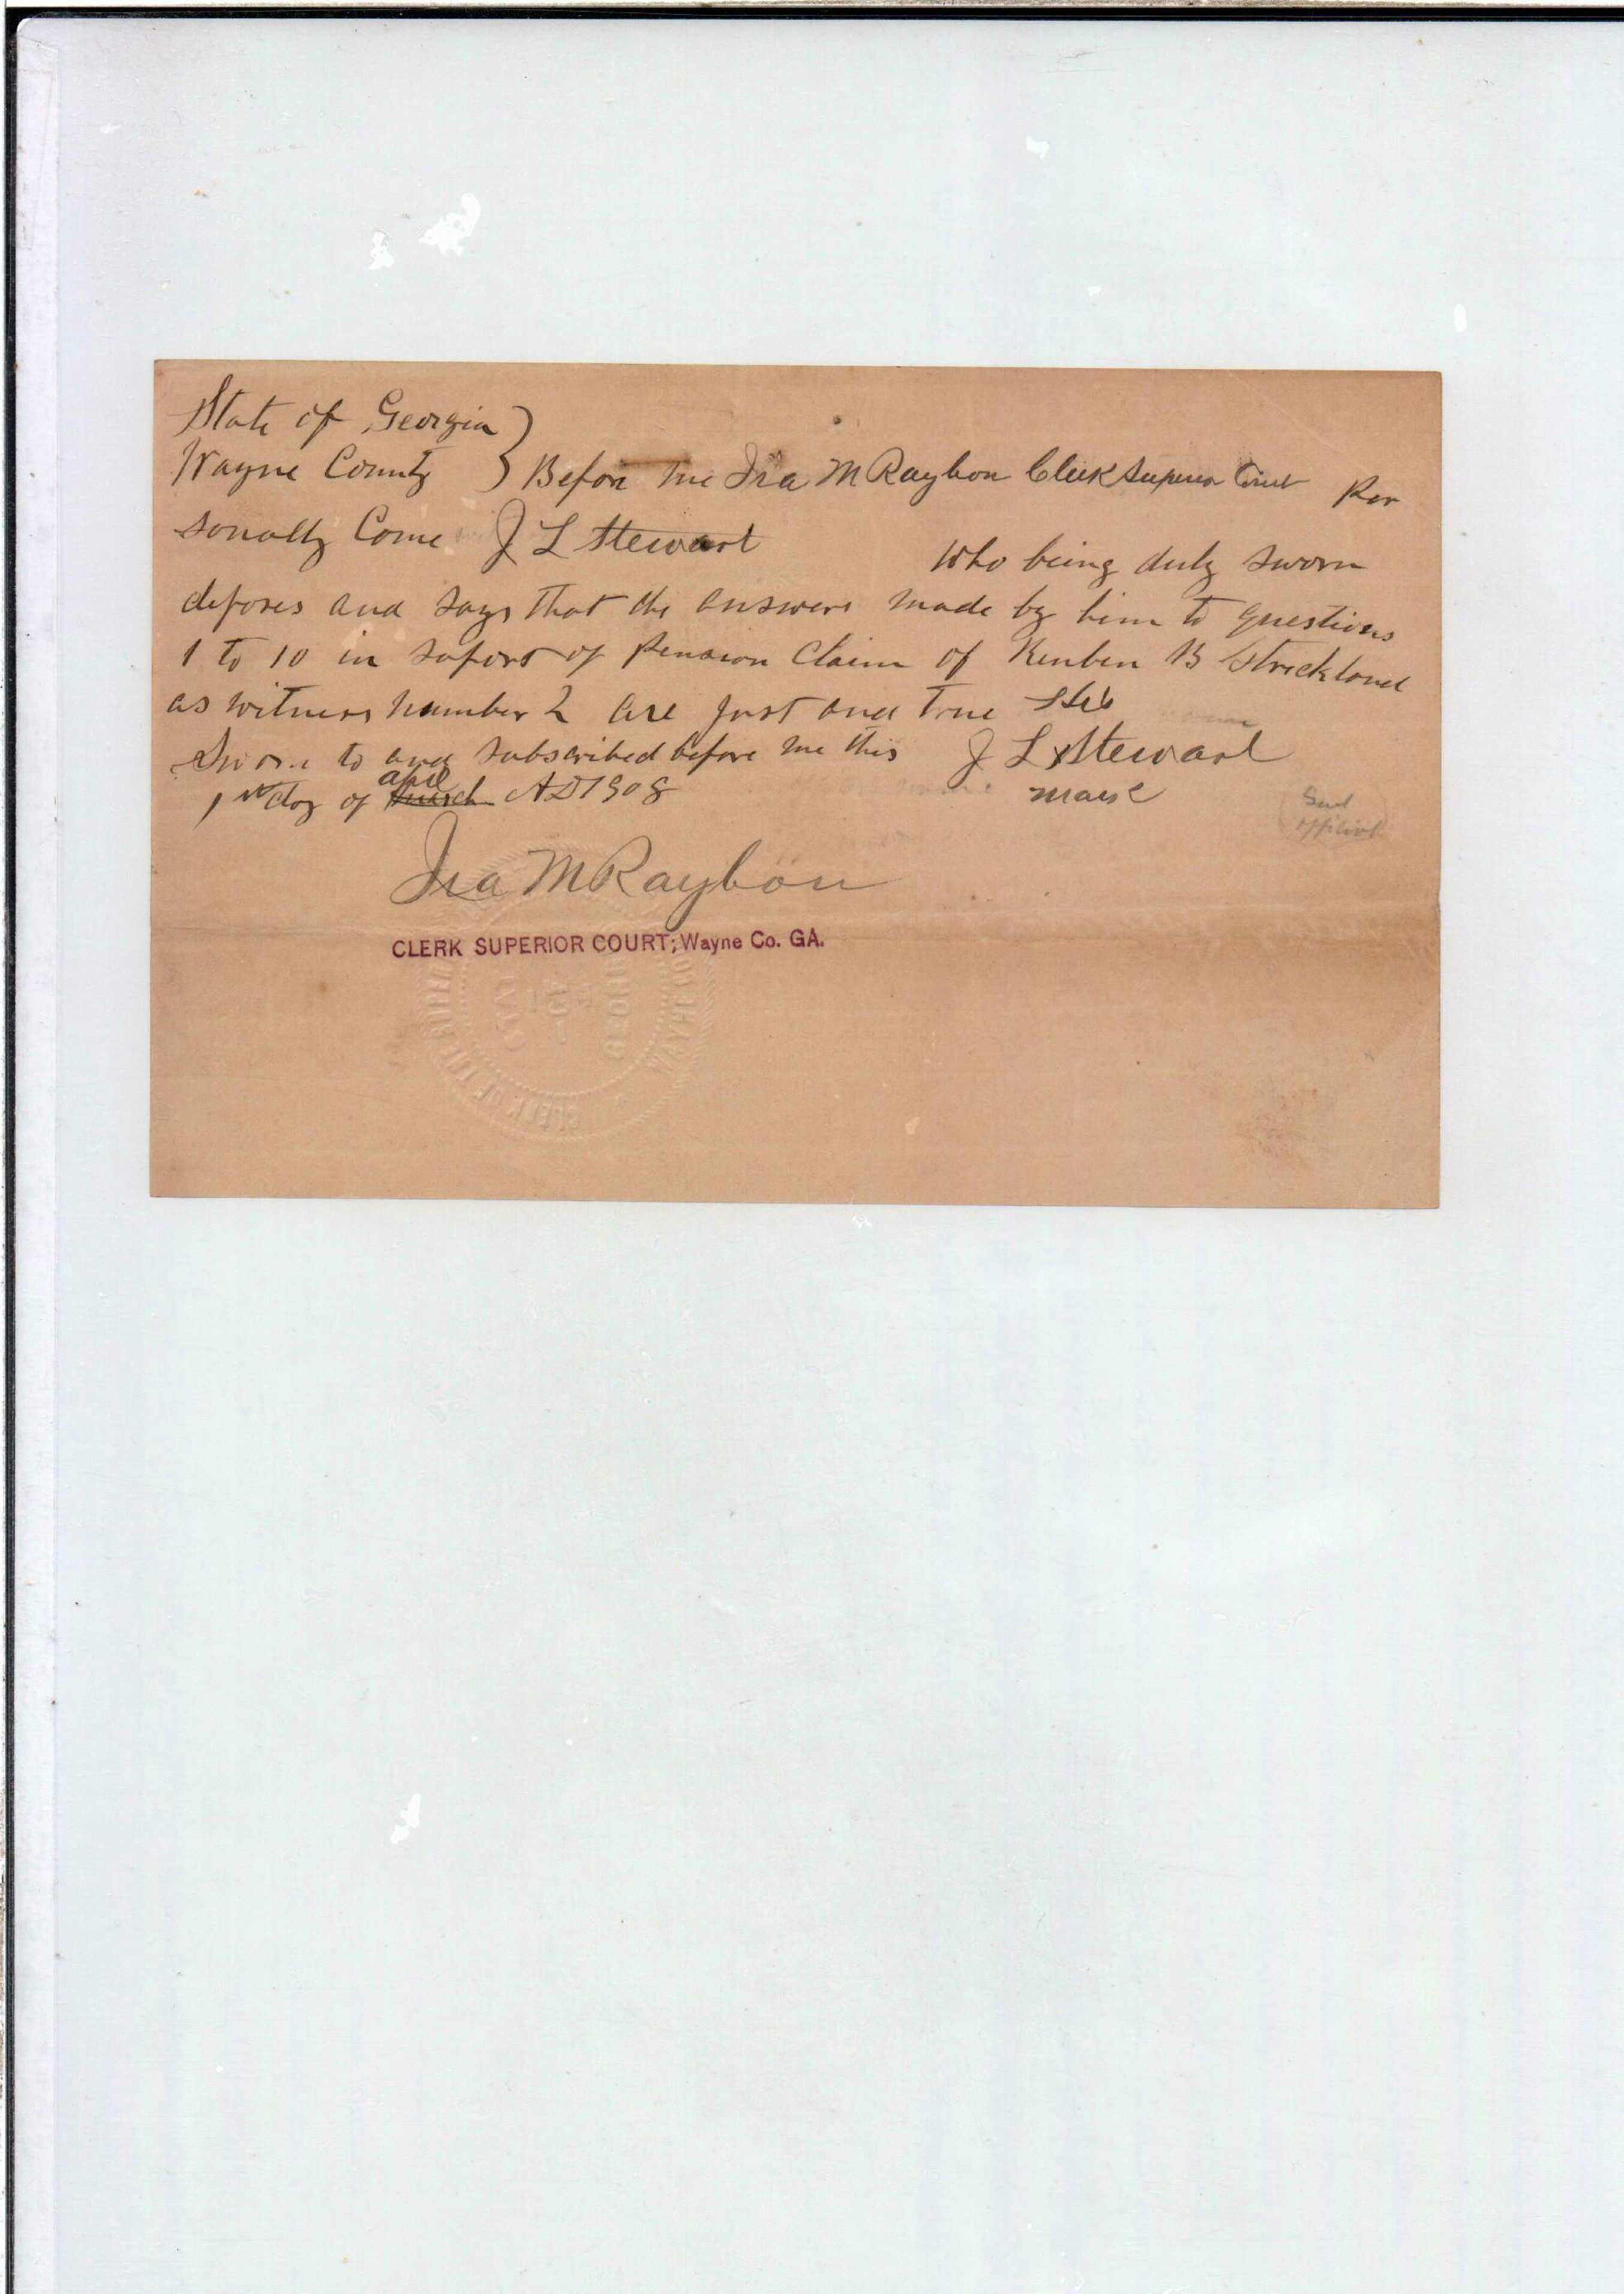 State of Georgia }
Wayne County } Before me Ira M Raybon Clerk Superior Court Per
sonally Come J L Stewart Who being duly sworn
deposes and says that the answers made by him to questions
1 to 10 in suport of Pension Claim of Reuben B Strickland
as witness number 2 are just and true his
Sworn to and subscribed before me this J L x Stewart
april
1st day of march AD 1908 mark
Ira M Raybon
CLERK SUPERIOR COURT; Wayne Co. GA.
CLERK OF THE WAYNE